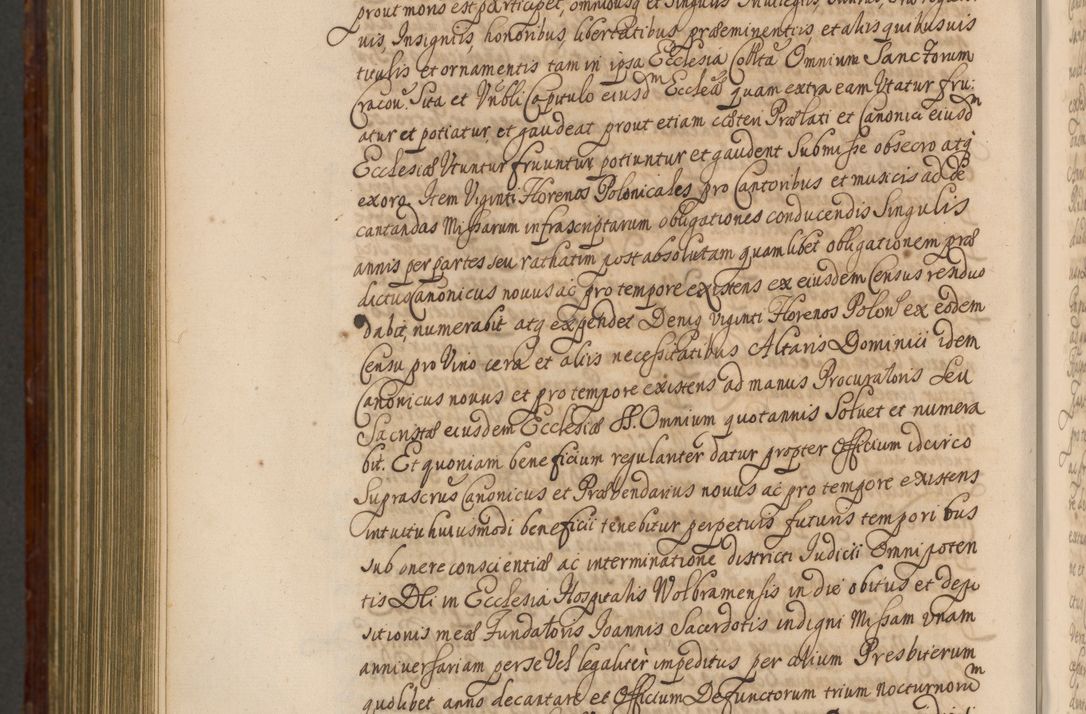 prout moris est participet, omnibusq et Singulis
uis, Insignijs, honoribus, libertatibus præeminentijs, et alijs quibusuis
titulis et ornamentis tam in ipsa Ecclesia Collta Omnium Sanctorum
Cracou: Sita et Vnbli Capitulo eiusdm Ecclæ quam extra eam Vtatur fru:
atur et potiatur, et gaudeat prout etiam cæteri Prælati et Canonici eiusdm
Ecclesiæ Vtuntur fruuntur potiuntur et gaudent Submisse obsecro atq
exoro. Item Viginti Florenos Polonicales pro Cantoribus et musicis ad de
cantandas Missarum infrascriptarum obligationes conducendis Singulis
annis per partes seu rathatim post absolutam quamlibet obligationem præ
dictus Canonicus nouus ac pro tempore existens ex eiusdem Census reddituo
dabit, numerabit atq expendet Deniq viginti Florenos Polon ex eodem
Censu pro Vino cera et alijs necessitatibus Altaris Dominici idem
Canonicus nouus et pro tempore existens ad manus Procuratoris seu
Sacristæ eiusdem Ecclesiæ SS. Omnium quotannis Soluet et numera
bit. Et quoniam beneficium regulariter datur propter Officium idcirco
Suprascrus Canonicus et Præbendarius nouus ac pro tempore existens
intuitu huiusmodi beneficii tenebitur perpetuis futuris temporibus
sub onere conscientiæ ac interminatione districti Iudicii Omnipoten
tis DEi in Ecclesia Hospitalis Wolbramensis in die obitus et depo
sitionis meæ Fundatoris Ioannis Sacerdotis indigni Missam vnam
anniuersariam per se Vel legaliter impeditus per alium Presbiterum
quolibet anno decantare et Officium Defunctorum trium nocturnorum